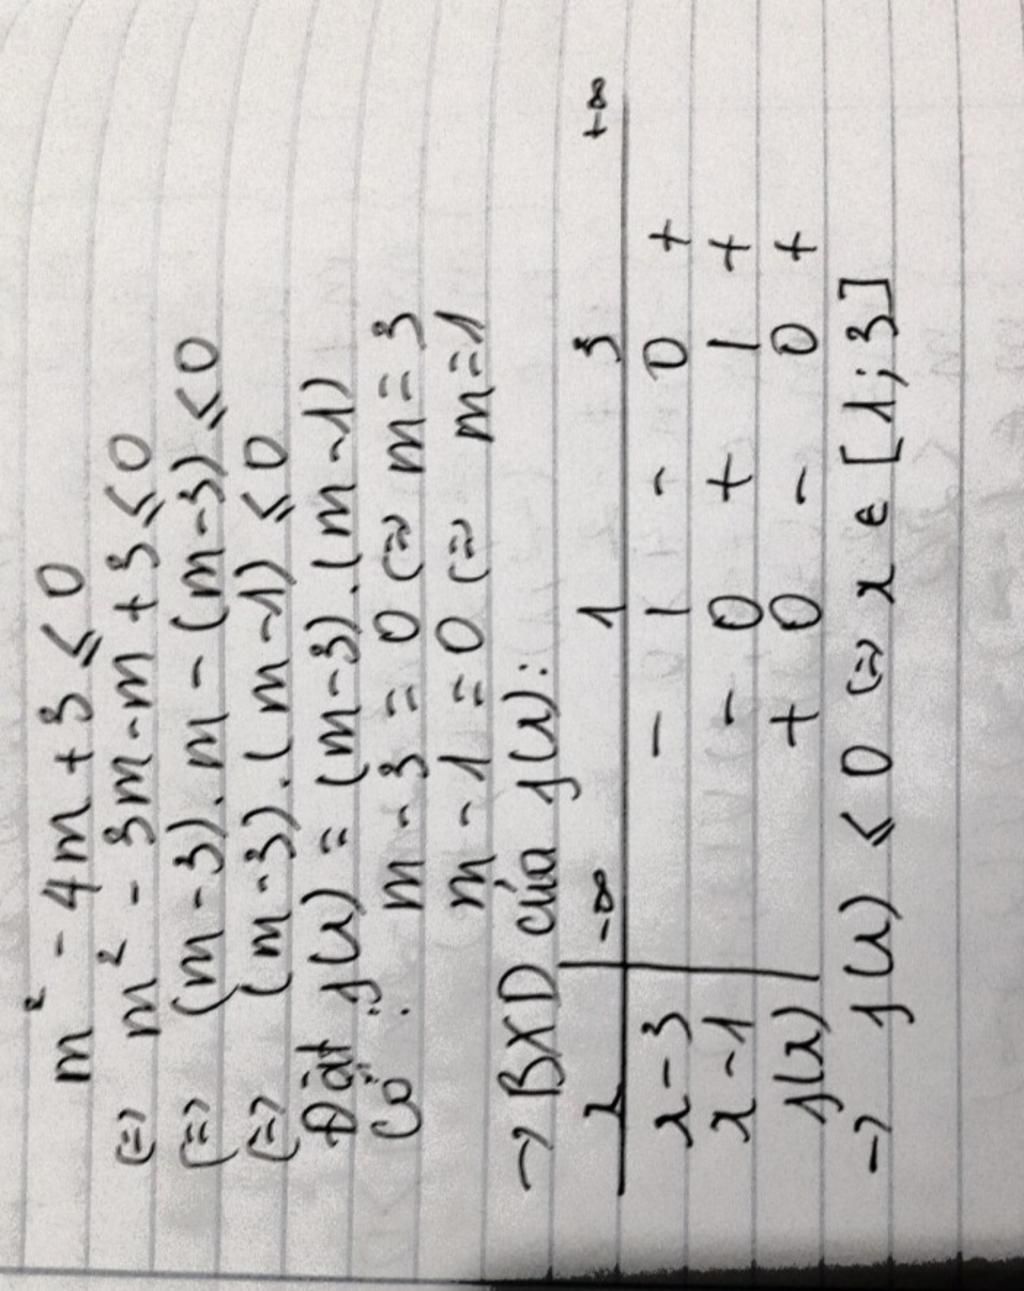 m² - 4m + 3 ≤ 0
(=) m² - 3m - m + 3 ≤ 0
(=) (m - 3).m - (m - 3) ≤ 0
(=) (m - 3).(m - 1) ≤ 0
Đặt f(x) = (m - 3).(m - 1)
Có: m - 3 = 0 (=) m = 3
m - 1 = 0 (=) m = 1
→ BXD của f(x):
x -∞ 1 3 +∞
x - 3 - | - 0 +
x - 1 - 0 + | +
f(x) + 0 - 0 +
→ f(x) ≤ 0 (=) x ∈ [1; 3]